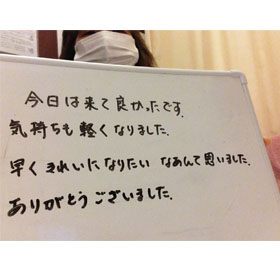 今日は来て良かったです.
気持ちも軽くなりました.
早くきれいになりたい なあんて思いました.
ありがとうございました.